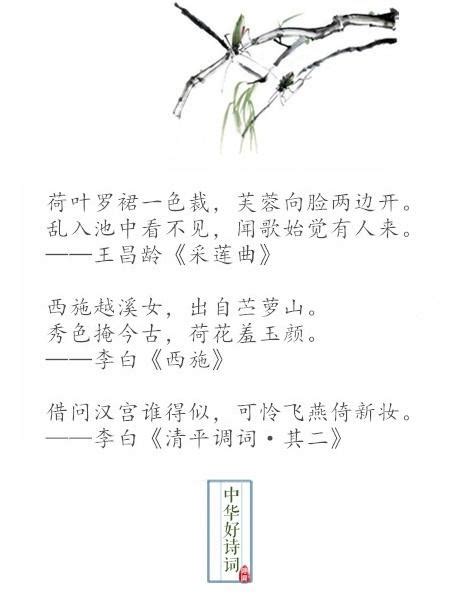 荷叶罗裙一色裁，芙蓉向脸两边开。
乱入池中看不见，闻歌始觉有人来。
——王昌龄《采莲曲》
西施越溪女，出自苎萝山。
秀色掩今古，荷花羞玉颜。
——李白《西施》
借问汉宫谁得似，可怜飞燕倚新妆。
——李白《清平调词·其二》
中华好诗词